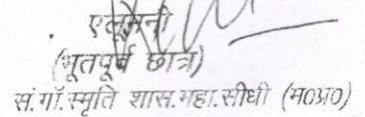 एलूमेनी
(भूतपूर्व छात्र)
सं.गाँ.स्मृति शास.महा.सीधी (म०प्र०)